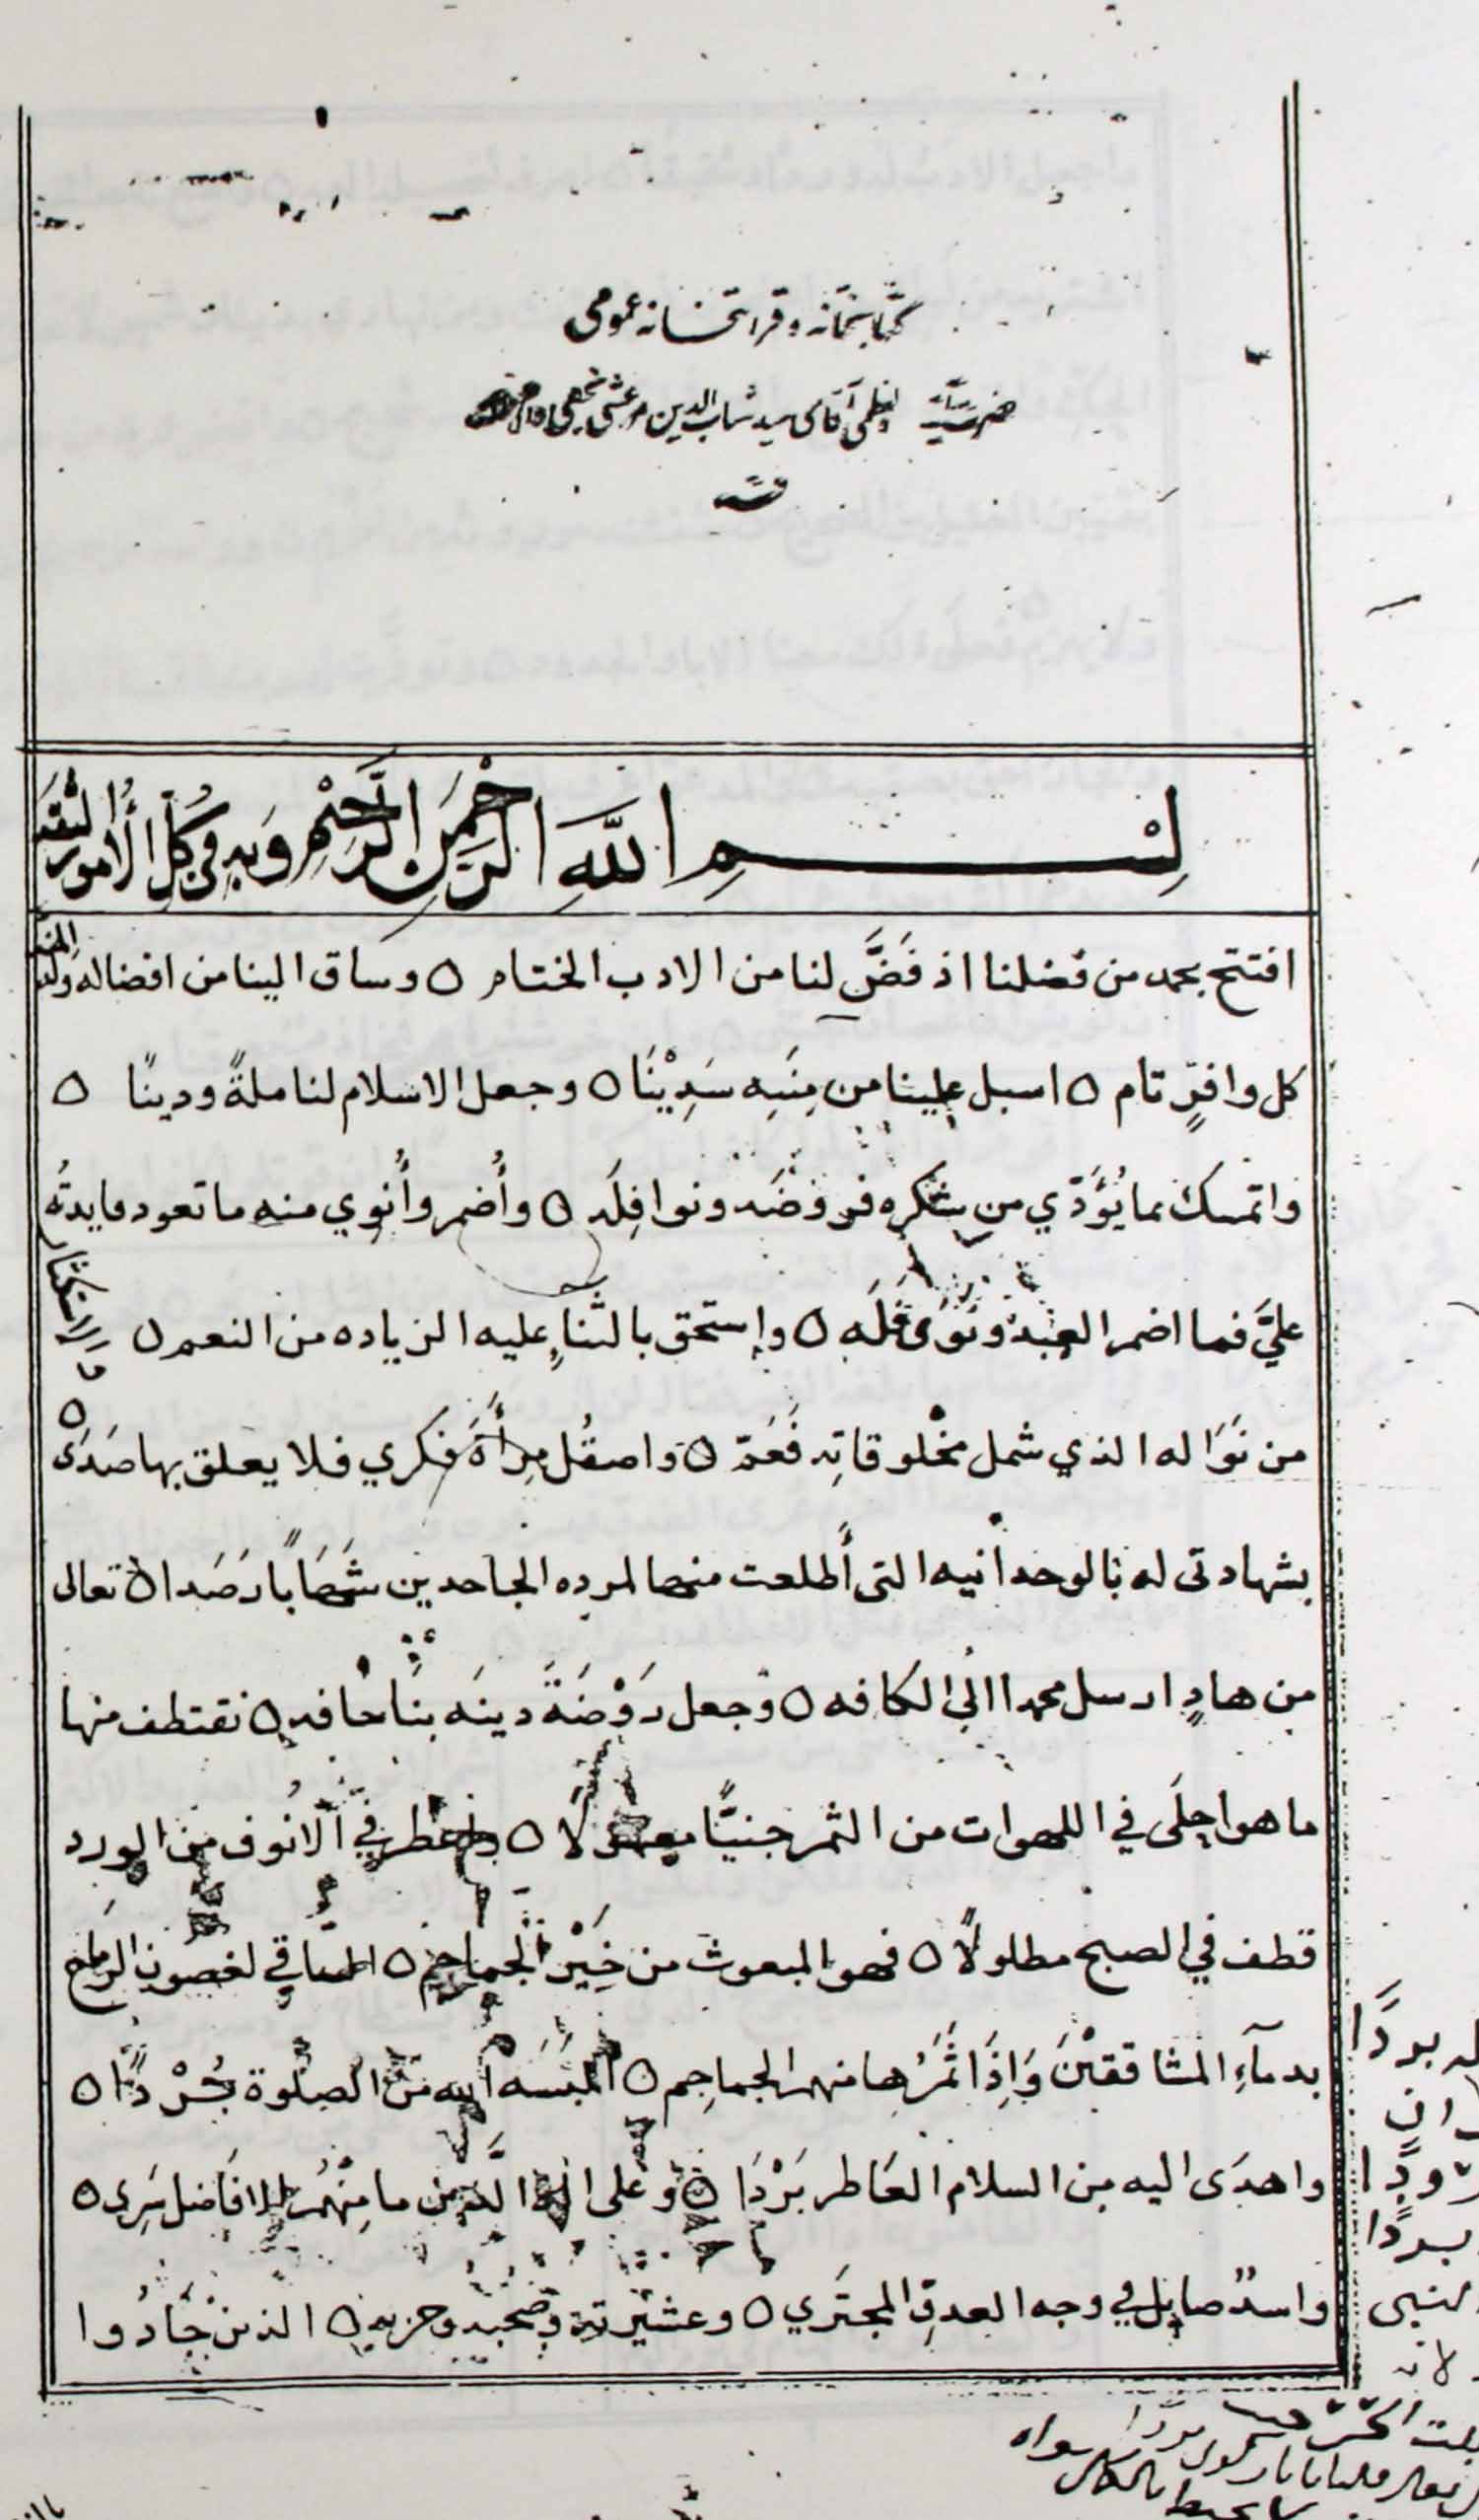 كتابخانه و قرائتخانه عمومی
حضرت آیت الله العظمی آقای سید شهاب الدین مرعشی نجفی
قم
بِسْمِ اللَّهِ الرَّحْمَنِ الرَّحِيْمِ وَبِهِ فِي كُلِّ الأمورِ الثِّقَه
افتتح بحمد من فضلنا اذ فَضَّ لنا من الادب الختام ٥ وساق الينا من افضاله وَ
كل وافٍ تام ٥ اسبل علينا من مِنَنِه سَدِيْنَا ٥ وجعل الاسلام لنا ملةً ودينًا ٥
واتمسك بما يُؤدّي من شكره فروضَه ونوافِلَه ٥ وأُضمر وأَنوي منه ما تعود فايدتُه
عليَّ فما اضمر العبدُ ونَوَى فَلَه ٥ واستحق بالثناءِ عليه الزياده من النعم ٥ والاستكثار
من نَوَاله الذي شمل مخلوقاتِه فَعَمّ ٥ واصقُل مِرأَةَ فكري فلا يعلق بها صَدَى ٥
بشهادتى له بالوحدانيه التى أَطلعت منها لمرده الجاحدين شهَابًا رَصَدا ٥ تعالى
من هادٍ ارسل محمدا الى الكافه ٥ وجعل رَوْضَةَ دينَه بنَا حافه ٥ نقتطف منها
ما هو احلَى في اللهوات من الثمر جنيًّا معسولا ٥ واعطر في الانُوف من الورد
قطف في الصبح مطلولًا ٥ فهو المبعوث من خَيْر الجماجم ٥ الساقي لغصون الرماح
بدمآءِ المشاققيْنَ وَاِذَا ثَمَرُها منهم الجماجِم ٥ البَسَه الله من الصلوة بُرْدًا ٥
واهدَى اليه من السلام العَاطر بَرْدَا ٥ وعلى اله الَّذين ما مِنْهُم الا فَاضل سَرِى ٥
واسدٌ صايل في وجه العدوّ المجتَرِي ٥ وعشيْرتِه وصَحبِه وحزبه ٥ الذين جَادُوا